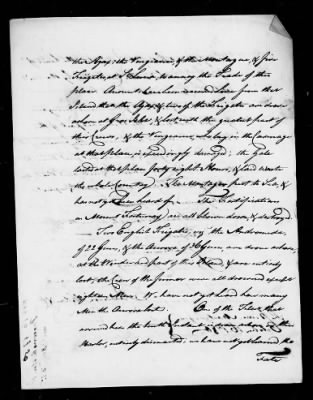 the Ajax, the Vengeance, & the Montague, & five
Frigates, at St Lucia, to annoy the Trade of this
place. Accounts have been received here from that
Island that the Ajax, & two of the Frigates are drove
ashore at Gros Islet, & lost, with the greatest part of
their Crews, & the Vengeance, laying in the Carenage
at that place, is exceedingly damaged; the Gale
lasted at that place forty eight Hours, & laid waste
the whole Country. The Montague put to Sea, &
has not been heard of. The Fortifications
on Mount Fortuneé are all blown down, & destroyed.
Two English Frigates, viz the Andromeda
of 28 Guns, & the Aurora of 28 Guns, are drove ashore,
at the Windward part of this Island, & are entirely
lost, the Crew of the former were all drowned except
eighteen Men. We have not yet heard how many
Men the Aurora lost. One of the Fleet that
arrived here the tenth Instant is drove ashore in the
Harbor, entirely dismasted; we have not yet learned the
Fate